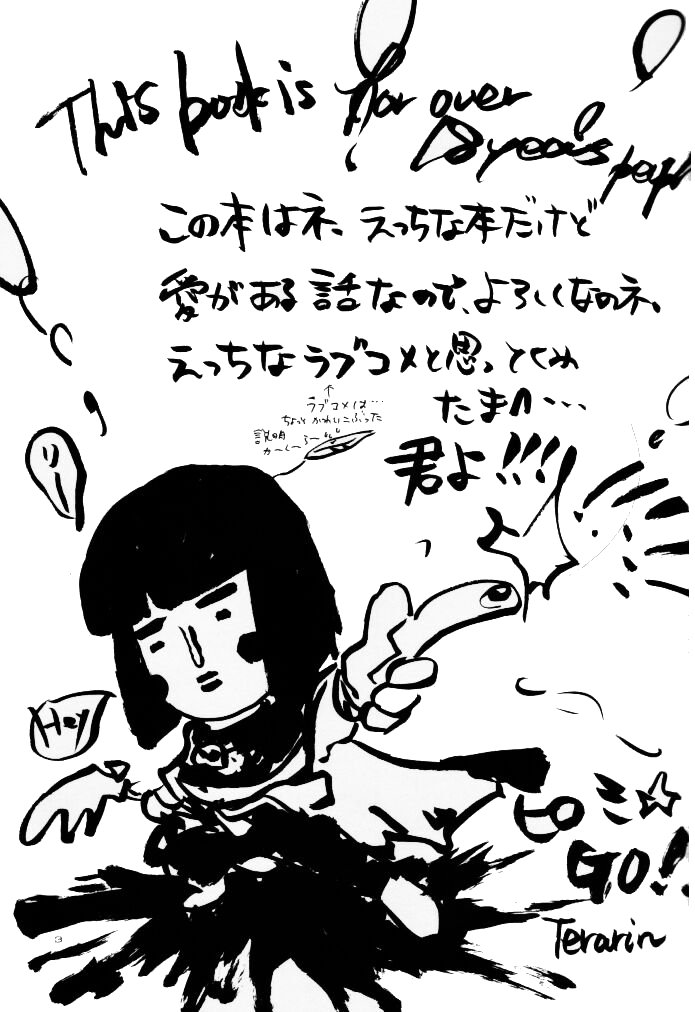 This book is for over
18 years people
この本はネ、えっちな本だけど
愛がある話なので、よろしくなのネ。
えっちなラブコメと思っとくみ
たまへ…
↑
ラブコメは…
ちょっとかわいこぶった
説明
か〜く〜る〜
君よ!!!
リー
Hey
ミ☆
GO!!
Terarin
3